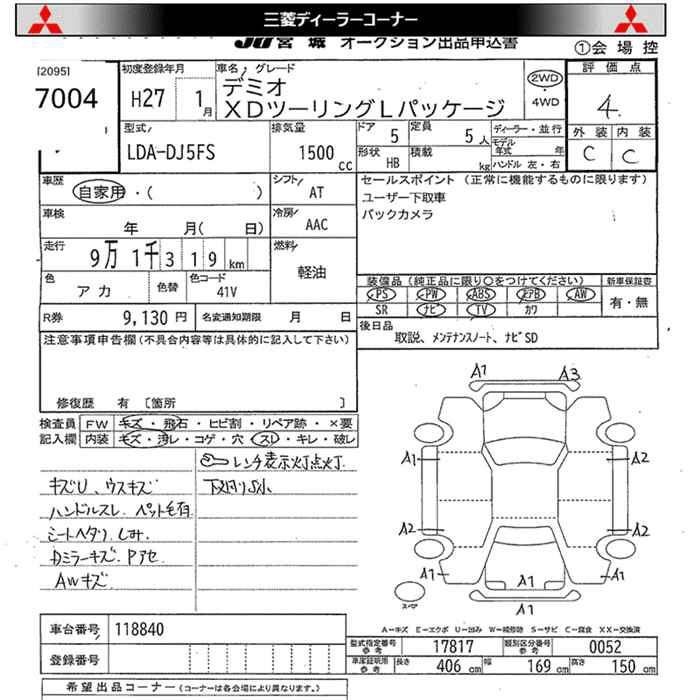 三菱ディーラーコーナー
JU宮城 オークション出品申込書
①会場控
[2095]
7004
初度登録年月
H27 1月
車名/グレード
デミオ
XDツーリングLパッケージ
2WD
・
4WD
評価点
4.
外装 内装
C C
型式/
LDA-DJ5FS
排気量
1500cc
ドア 5 定員 5人
形状 HB 積載 kg
ディーラー・並行
モデル年式 年
ハンドル 左・右
車歴
自家用・( )
シフト/
AT
車検
年 月(日)
冷房/
AAC
走行
9万1千319km
燃料/
軽油
色
アカ
色替
色コード
41V
R券 9,130円
名変通知期限 月 日
セールスポイント (正常に機能するものに限ります)
ユーザー下取車
バックカメラ
装備品(純正品に限り○をつけてください)
新車保証書
PS PW ABS エアB AW
SR ナビ TV カワ
有・無
後日品
取説、メンテナンスノート、ナビSD
注意事項申告欄(不具合内容等は具体的に記入して下さい)
修復歴 有 〔箇所 〕
検査員記入欄
FW キズ・飛石・ヒビ割・リペア跡・×要
内装 キズ・汚レ・コゲ・穴・スレ・キレ・破レ
レンチ表示灯点灯
キズU、ウスキズ
下回りS小
ハンドルスレ ペット毛有
シートヘタリ しみ
Dミラーキズ Pアセ
AWキズ
A1 A3
A1 A2
A2 A2
A1 A1 A1
A1
スペア
A-キズ E-エクボ U-凹み W-補修跡 S-サビ C-腐食 XX-交換済
車台番号 118840
登録番号
型式指定番号 参考 17817
類別区分番号 参考 0052
車庫証明用 参考 長さ 406cm 幅 169cm 高さ 150cm
希望出品コーナー(コーナーは各会場により異なります。)